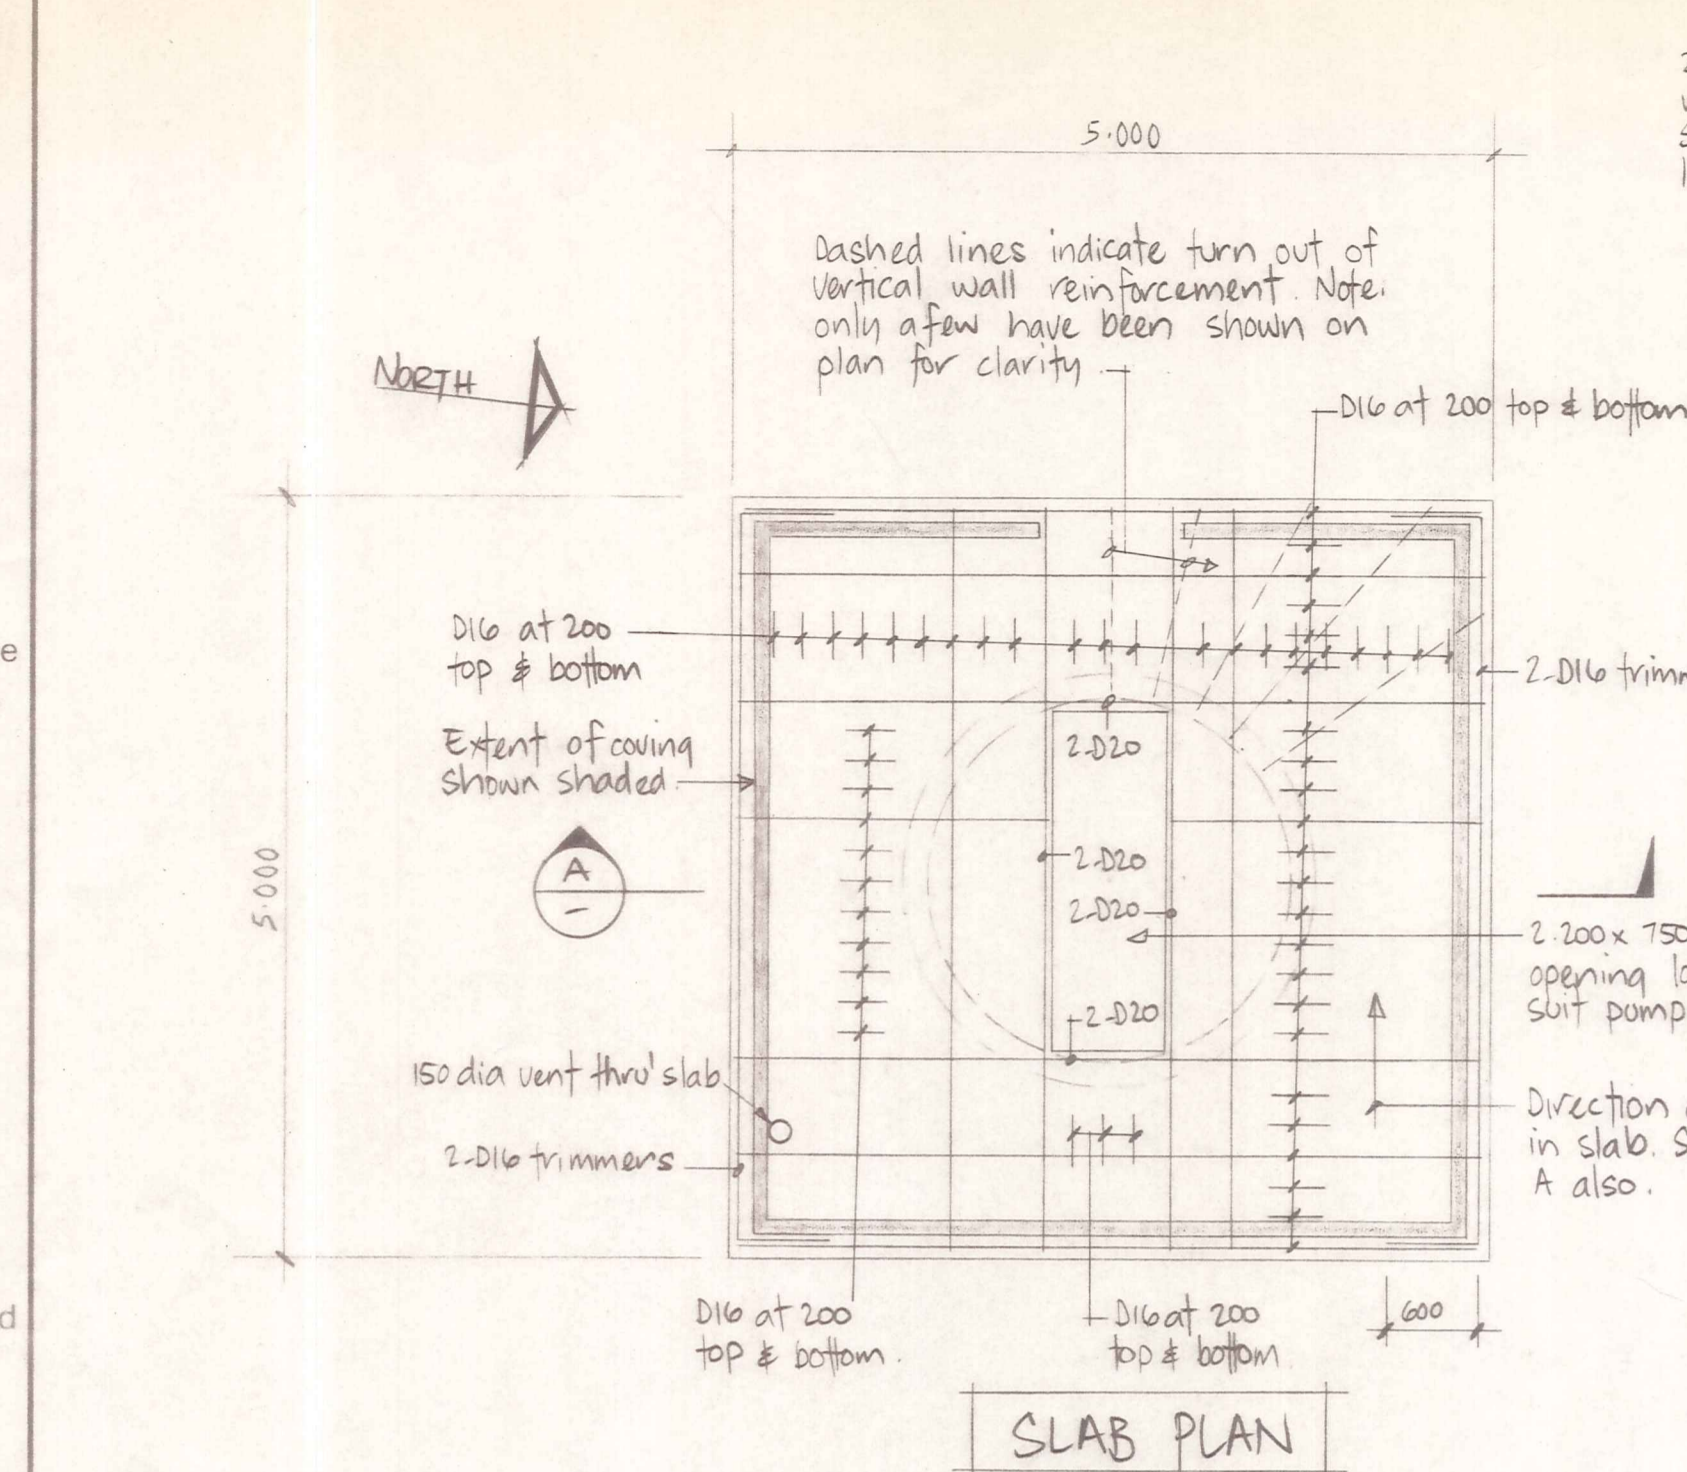 5.000
Dashed lines indicate turn out of
vertical wall reinforcement. Note.
only a few have been shown on
plan for clarity.
NORTH
D16 at 200 top & bottom
D16 at 200
top & bottom
2-D16
Extent of coving
shown shaded.
2-D20
2-D20
2-D20
2-D20
A
5.000
2.200 x 750
opening
suit pump
150 dia vent thru' slab
2-D16 trimmers
Direction
in slab.
A also.
600
D16 at 200
top & bottom.
D16 at 200
top & bottom
SLAB PLAN
e
d